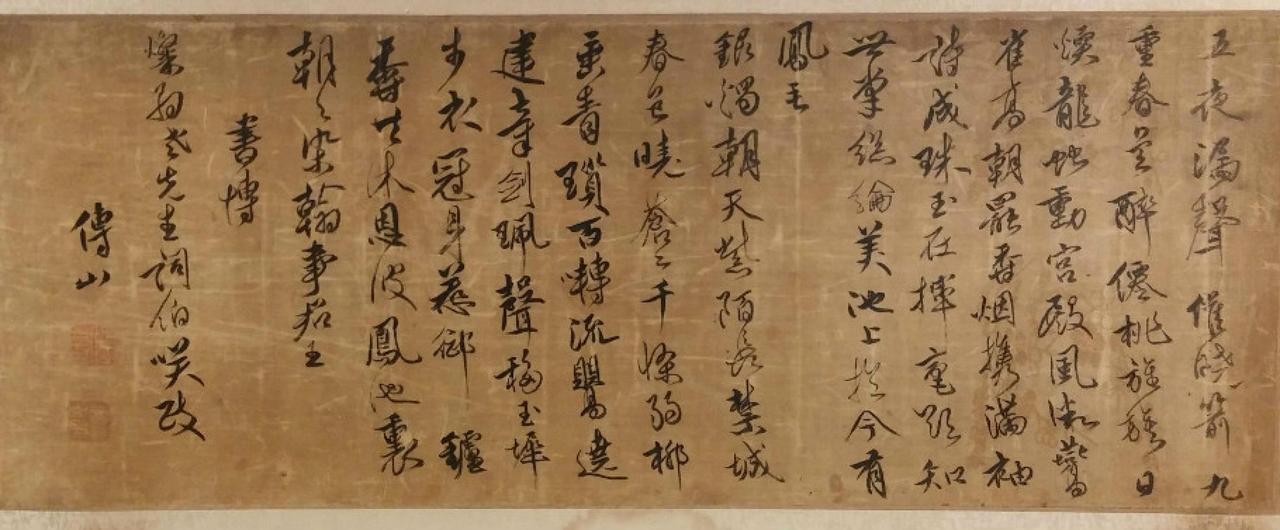 五夜漏聲催曉箭九
重春色醉僊桃旌旗日
煖龍蛇動宮殿風微燕
雀高朝罷香烟携滿袖
詩成珠玉在揮毫欲知
世掌絲綸美池上于今有
鳳毛
銀燭朝天紫陌長禁城
春色曉蒼〻千條弱柳
垂青瑣百囀流鶯遶
建章劍珮聲移玉墀
步衣冠身惹御鑪
香共沐恩波鳳池裏
朝〻染翰事君王
書博
翁老先生詞伯咲政
傅山